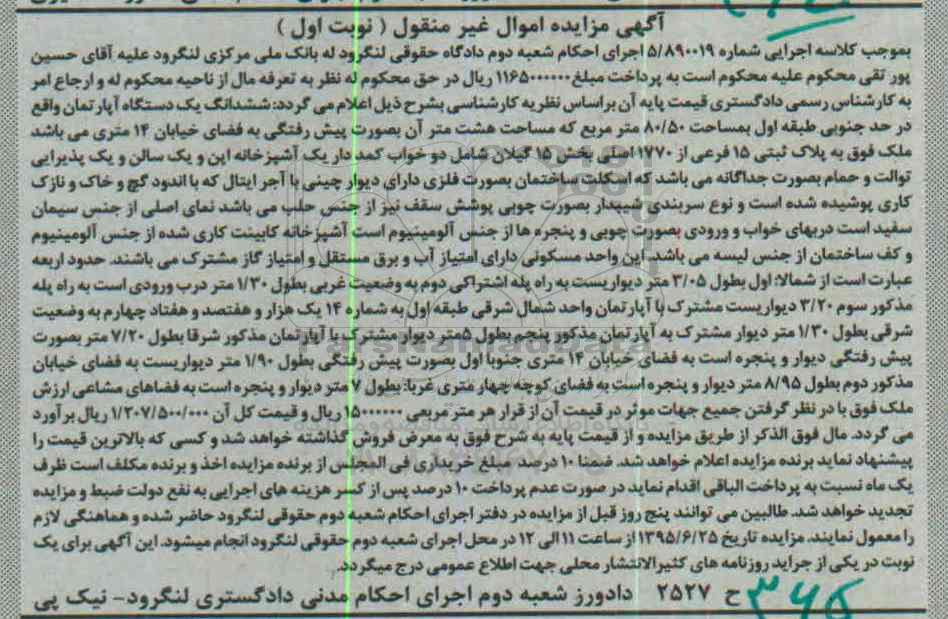 آگهی مزایده اموال غیر منقول ( نوبت اول )
بموجب کلاسه اجرایی شماره ۵/۸۹۰۰۱۹ اجرای احکام شعبه دوم دادگاه حقوقی لنگرود له بانک ملی مرکزی لنگرود علیه آقای حسین
پور تقی محکوم علیه محکوم است به پرداخت مبلغ ۱۱۶۵۰۰۰۰۰۰ ریال در حق محکوم له نظر به تعرفه مال از ناحیه محکوم له و ارجاع امر
به کارشناس رسمی دادگستری قیمت پایه آن براساس نظریه کارشناسی بشرح ذیل اعلام می گردد: ششدانگ یک دستگاه آپارتمان واقع
در حد جنوبی طبقه اول بمساحت ۸۰/۵۰ متر مربع که مساحت هشت متر آن بصورت پیش رفتگی به فضای خیابان ۱۴ متری می باشد
ملک فوق به پلاک ثبتی ۱۵ فرعی از ۱۷۷۰ اصلی بخش ۱۵ گیلان شامل دو خواب کمد دار یک آشپزخانه اپن و یک سالن و یک پذیرایی
توالت و حمام بصورت جداگانه می باشد که اسکلت ساختمان بصورت فلزی دارای دیوار چینی با آجر ایتال که با اندود گچ و خاک و نازک
کاری پوشیده شده است و نوع سربندی شیبدار بصورت چوبی پوشش سقف نیز از جنس حلب می باشد نمای اصلی از جنس سیمان
سفید است دربهای خواب و ورودی بصورت چوبی و پنجره ها از جنس آلومینیوم است آشپزخانه کابینت کاری شده از جنس آلومینیوم
و کف ساختمان از جنس لیسه می باشد. این واحد مسکونی دارای امتیاز آب و برق مستقل و امتیاز گاز مشترک می باشند. حدود اربعه
عبارت است از شمالا: اول بطول ۳/۰۵ متر دیواریست به راه پله اشتراکی دوم به وضعیت غربی بطول ۱/۳۰ متر درب ورودی است به راه پله
مذکور سوم ۳/۲۰ دیواریست مشترک با آپارتمان واحد شمال شرقی طبقه اول به شماره ۱۴ یک هزار و هفتصد و هفتاد چهارم به وضعیت
شرقی بطول ۱/۳۰ متر دیوار مشترک به آپارتمان مذکور پنجم بطول ۵متر دیوار مشترک با آپارتمان مذکور شرقا بطول ۷/۲۰ متر بصورت
پیش رفتگی دیوار و پنجره است به فضای خیابان ۱۴ متری جنوبا اول بصورت پیش رفتگی بطول ۱/۹۰ متر دیواریست به فضای خیابان
مذکور دوم بطول ۸/۹۵ متر دیوار و پنجره است به فضای کوچه چهار متری غربا: بطول ۷ متر دیوار و پنجره است به فضاهای مشاعی ارزش
ملک فوق با در نظر گرفتن جمیع جهات موثر در قیمت آن از قرار هر متر مربعی ۱۵۰۰۰۰۰۰ ریال و قیمت کل آن ۱/۲۰۷/۵۰۰/۰۰۰ ریال برآورد
می گردد. مال فوق الذکر از طریق مزایده و از قیمت پایه به شرح فوق به معرض فروش گذاشته خواهد شد و کسی که بالاترین قیمت را
پیشنهاد نماید برنده مزایده اعلام خواهد شد. ضمنا ۱۰ درصد مبلغ خریداری فی المجلس از برنده مزایده اخذ و برنده مکلف است ظرف
یک ماه نسبت به پرداخت الباقی اقدام نماید در صورت عدم پرداخت ۱۰ درصد پس از کسر هزینه های اجرایی به نفع دولت ضبط و مزایده
تجدید خواهد شد. طالبین می توانند پنج روز قبل از مزایده در دفتر اجرای احکام شعبه دوم حقوقی لنگرود حاضر شده و هماهنگی لازم
را معمول نمایند. مزایده تاریخ ۱۳۹۵/۶/۲۵ از ساعت ۱۱ الی ۱۲ در محل اجرای شعبه دوم حقوقی لنگرود انجام میشود. این آگهی برای یک
نوبت در یکی از جراید روزنامه های کثیرالانتشار محلی جهت اطلاع عمومی درج میگردد.
ح ۲۵۲۷ دادورز شعبه دوم اجرای احکام مدنی دادگستری لنگرود- نیک پی